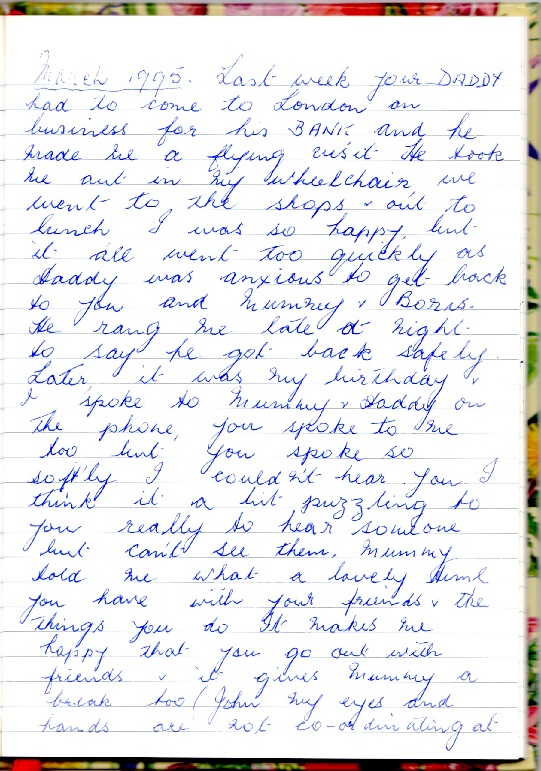 March 1995. Last week your DADDY
had to come to London on
business for his BANK and he
made me a flying visit He took
me out in my wheelchair, we
went to the shops & out to
lunch I was so happy, but
it all went too quickly as
Daddy was anxious to get back
to you and Mummy & Boris.
He rang me late at night
to say he got back safely.
Later, it was my birthday &
I spoke to Mummy & Daddy on
the phone, you spoke to me
too but you spoke so
softly I couldn't hear you I
think it a bit puzzling to
you really to hear someone
but can't see them. Mummy
told me what a lovely time
you have with your friends & the
things you do It makes me
happy that you go out with
friends & it gives Mummy a
break too (John my eyes and
hands are not co-ordinating at